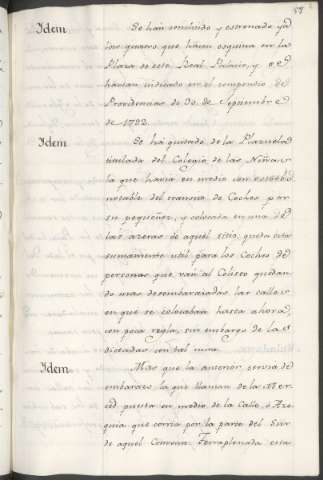 Idem
Se han concluido y estrenado ya
los quatro que hacen esquina en la
Plaza de este Real Palacio, y se
havian indicado en el compendio de
Providencias de 30. de Septiembre
de 1792.
Idem
Se há quitado de la Plazuela
titulada del Colegio de las Niñas,
la que havia en medio con estorbo
notable del transito de Coches por
su pequeñez, y colocada en una de
las aceras de aquel sitio, queda esta
sumamente util para los Coches de
personas que van al Coliseo quedan
do mas desembarazadas las calles
en que se colocaban hasta ahora,
con poca regla, sin embargo de las
dictadas con tal mira.
Idem
Mas que la anterior servia de
embarazo la que llaman de la Mer
ced puesta en medio de la Calle, ó Aze
quia que corria por la parte del Sur
de aquel Comvento. Terraplenada esta